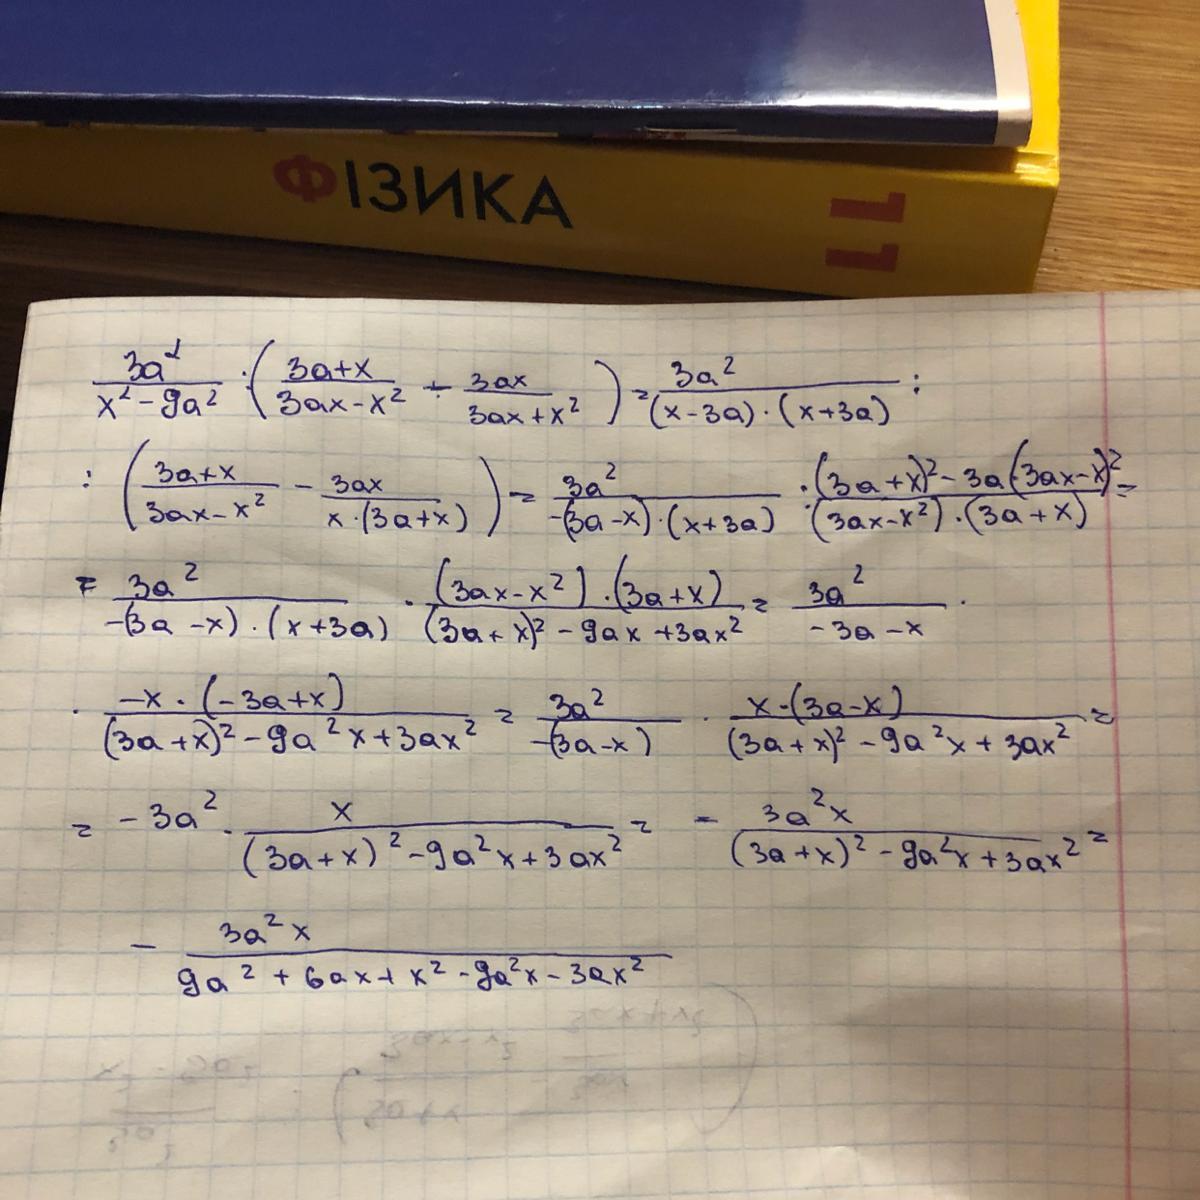 ФІЗИКА 11
3a² / (x² - 9a²) : ( (3a+x) / (3ax-x²) ÷ 3ax / (3ax+x²) ) = 3a² / ((x-3a)·(x+3a)) :
: ( (3a+x) / (3ax-x²) - 3ax / (x·(3a+x)) ) = 3a² / (-(3a-x)·(x+3a)) : ((3a+x)² - 3a(3ax-x)²) / ((3ax-x²)·(3a+x)) =
= 3a² / (-(3a-x)·(x+3a)) · ((3ax-x²)·(3a+x)) / ((3a+x)² - 9ax + 3ax²) = 3a² / (-3a-x) ·
· (-x·(-3a+x)) / ((3a+x)² - 9a²x + 3ax²) = 3a² / (-(3a-x)) · (x·(3a-x)) / ((3a+x)² - 9a²x + 3ax²) =
= -3a² · x / ((3a+x)² - 9a²x + 3ax²) = - 3a²x / ((3a+x)² - 9a²x + 3ax²) =
- 3a²x / (9a² + 6ax + x² - 9a²x - 3ax²)